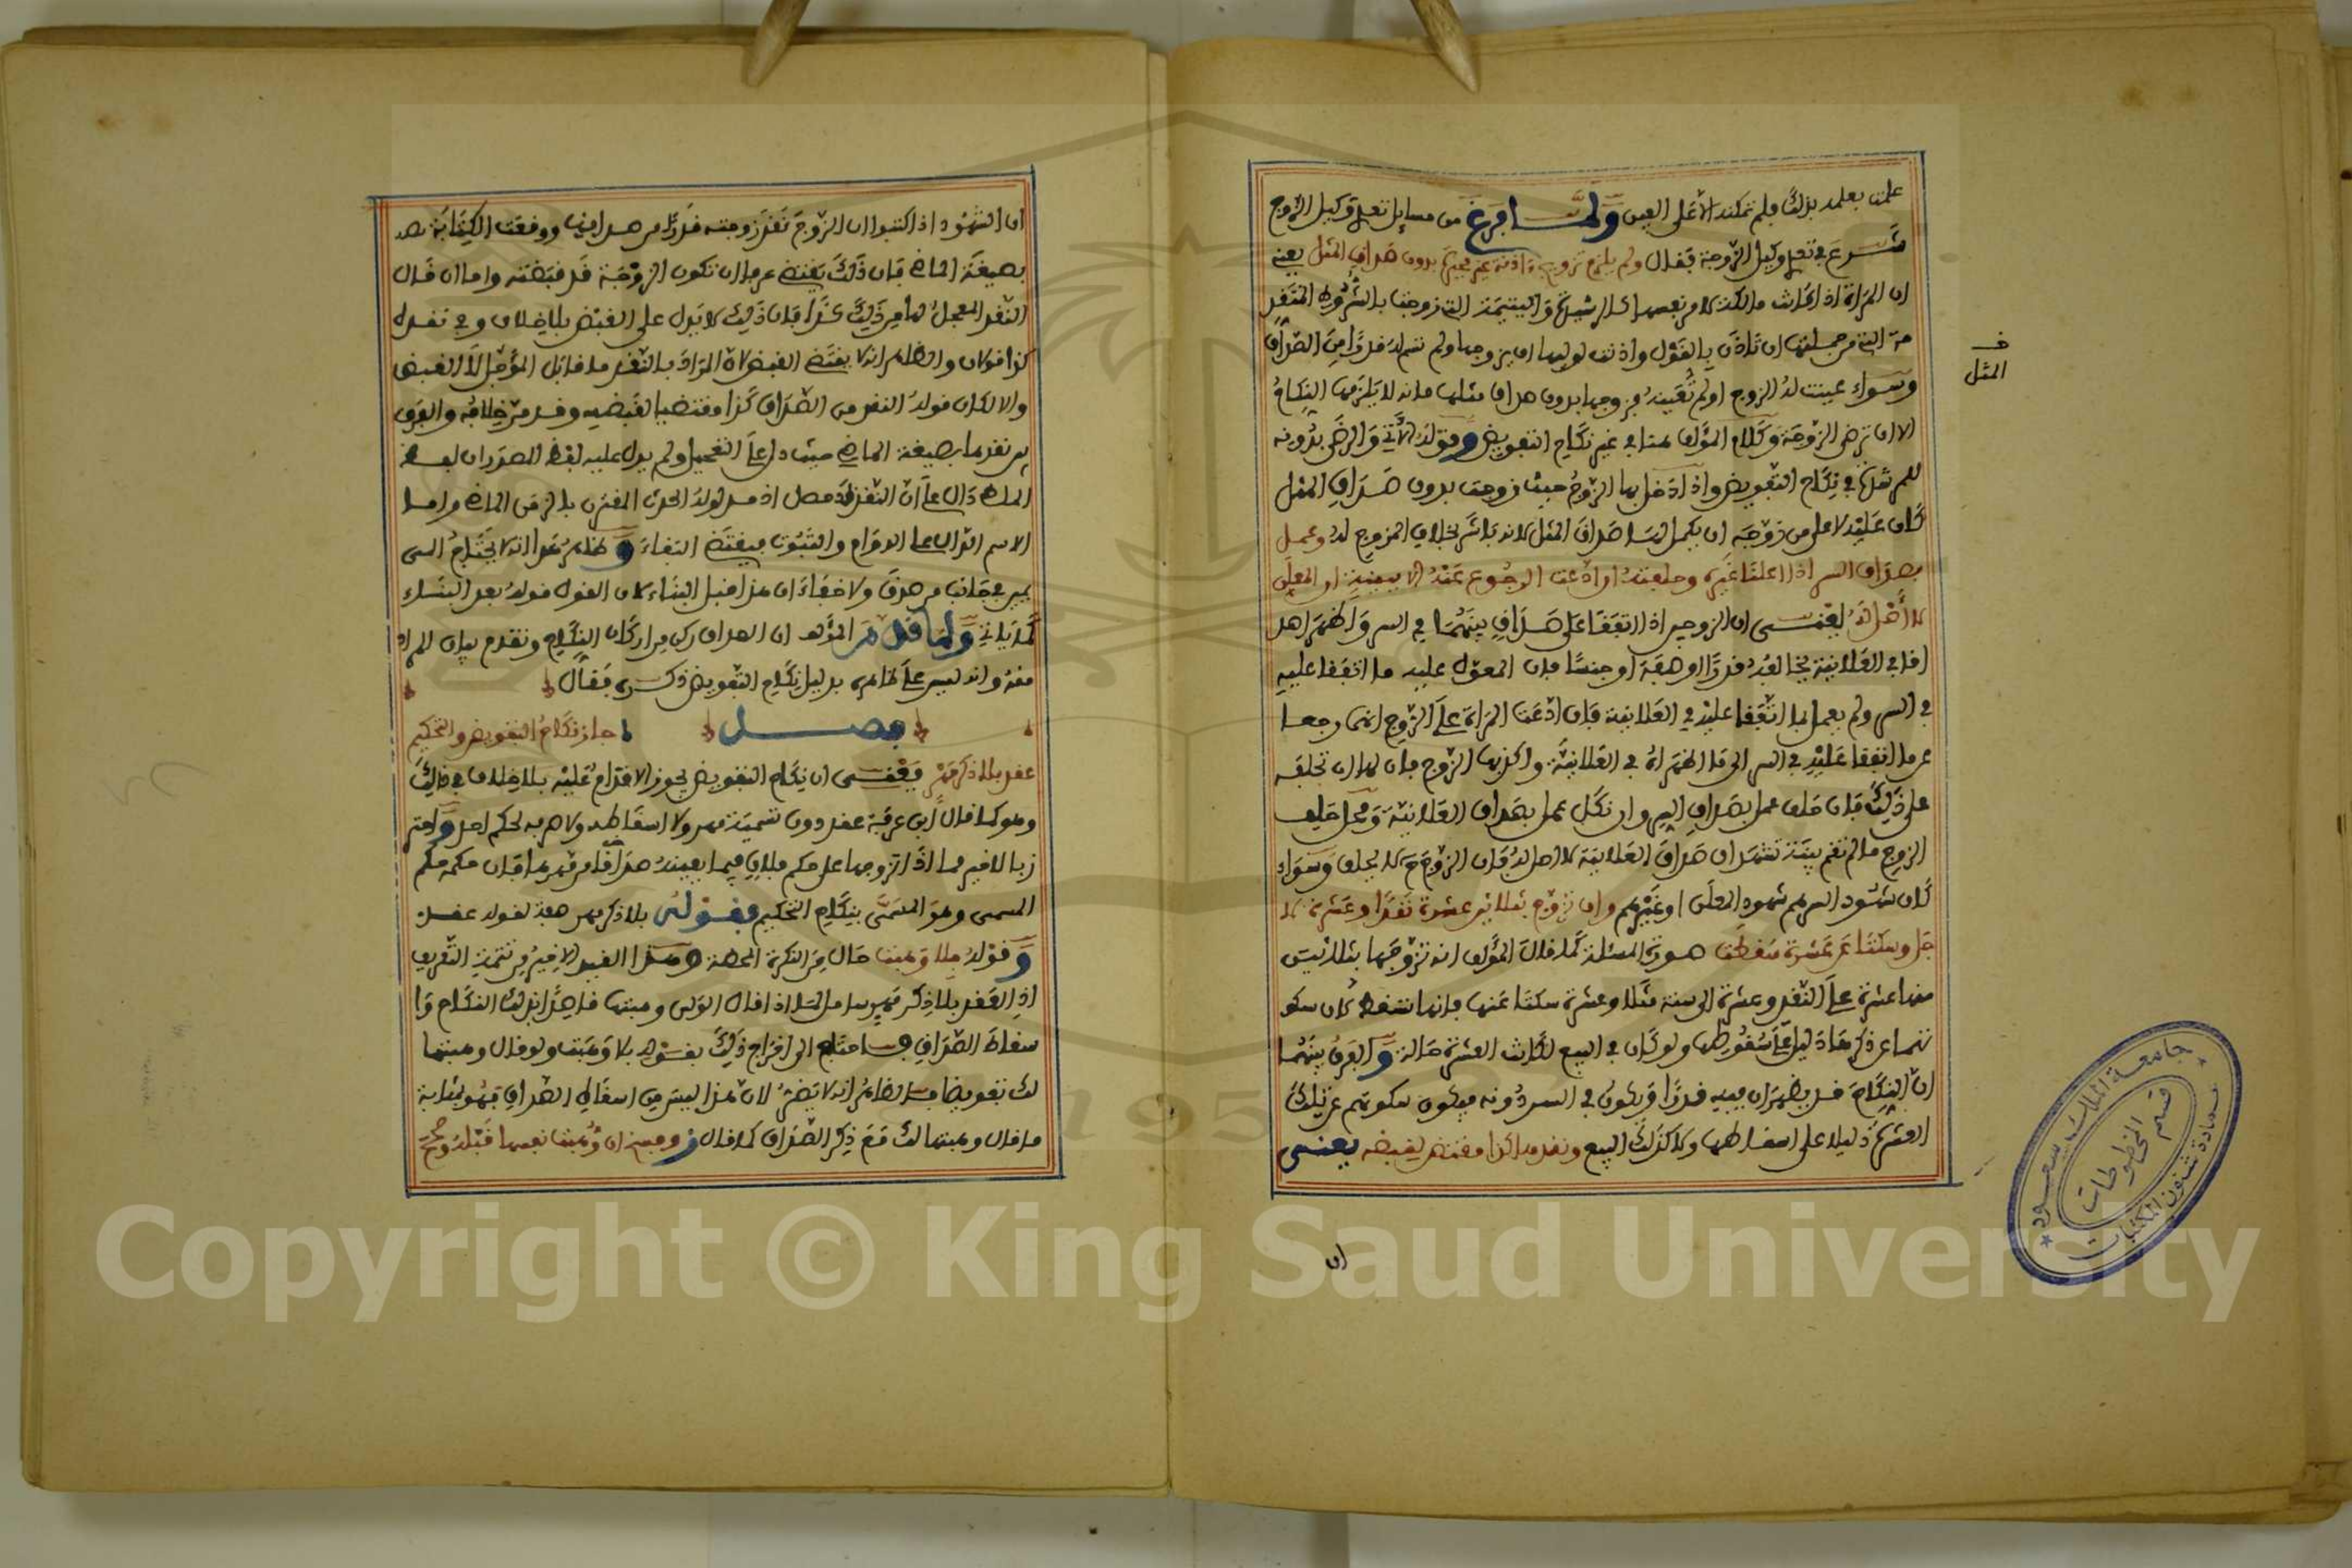 علمت بعلمه بذلك فلم تمكنه الا على العيب ولما فرغ من مسايل تعدي وكيل الزوج
شرع في تعدي وكيل الزوجة فقال ولم يلزم تزويج اذنة غير مجبرة بدون صداق المثل يعني
ان المراة اذا كانت مالكة لامر نفسها كالرشيدة واليتيمة التي زوجت بالشروط المتقد
مة التي من جملتها ان تاذن بالقول واذنت لوليها ان يزوجها ولم تسم له قدرا من الصداق
وسواء عينت له الزوج او لم تعينه فزوجها بدون صداق مثلها فانه لا يلزمها النكاح
الا ان ترضى الزوجة وكلام المؤلف هنا في غير نكاح التفويض وقوله الآتي والرضى بدونه
للمرشدة في نكاح التفويض واذا دخل بها الزوج حيث زوجت بدون صداق المثل
كان عليه لا على من زوجه ان يكمل لها صداق المثل لانه باشر بخلاف المزوج له وعمل
بصداق السر اذا اعلنا غيره وحلفته ان ادعت الرجوع عنه الا ببينة ان المعلن
لا أصل له يعني ان الزوجين اذا اتفقا على صداق بينهما في السر واظهرا صد
اقا في العلانية يخالفه قدرا او صفة او جنسا فان المعول عليه ما اتفقا عليه
في السر ولم يعمل بما اتفقا عليه في العلانية فان ادعت المراة على الزوج انهما رجعا
عن ما اتفقا عليه في السر الى ما اظهراه في العلانية واكذبها الزوج فان لها ان تحلفه
على ذلك فان حلف عمل بصداق السر وان نكل عمل بصداق العلانية ومحل حلف
الزوج ما لم تقم بينة تشهد ان صداق العلانية لا اصل له فان الزوج ح لا يحلف وسواء
كان شهود السر هم شهود المعلن او غيرهم وان تزوج بثلاثين عشرة نقدا وعشرة لا
جل وسكتا عن عشرة سقطت صورة المسئلة كما قال المؤلف انه تزوجها بثلاثين
منها عشرة على النقد وعشرة الى سنة مثلا وعشرة سكتا عنها فانها تسقط لان سكو
تهما عن ذكرها دليل على سقوطها ولو كان في البيع لكانت العشرة حالة والفرق بينهما
ان النكاح قد يظهران فيه قدرا ويكون في السر دونه فيكون سكوتهم عن تلك
العشرة دليلا على اسقاطها ولا كذلك البيع ونقدها كذا مقتض لقبضه يعني
ف
المثل
ان
ان الشهود اذا كتبوا ان الزوج نقد زوجته قدرا من صداقها ووقعت الكتابة هـ
بصيغة الماضي فان ذلك يقتضي عرفا ان تكون الزوجة قد قبضته واما ان قال
النقد المعجل لها من ذلك كذا فان ذلك لا يدل على القبض بلا خلاف وفي نقده
كذا قولان والظاهر انه لا يقتضي القبض لان المراد بالنقد ما قابل المؤجل لا القبض
والا لكان قوله النقد من الصداق كذا مقتضيا لقبضه وقد مر خلافه والفرق
بين نقدها بصيغة الماضي حيث دل على التعجيل ولم يدل عليه لفظ المصدر ان لفظ
الماضي دال على ان النقد قد حصل اذ مدلوله الحدث المقترن بالزمن الماضي واما
الاسم الدال على الدوام والثبوت فيقتضي البقاء وظاهر هذا انه لا يحتاج الى
يمين في جانب من صدق ولا خفاء ان هذا قبل البناء لان القول قوله بعد البناء
كما ياتي ولما قدم المؤلف ان الصداق ركن من اركان النكاح وتقدم بيان المراد
منه وانه ليس على ظاهره بدليل نكاح التفويض ذكره فقال
فصل جاز نكاح التفويض والتحكيم
عقد بلا ذكر مهر يعني ان نكاح التفويض يجوز الاقدام عليه بلا خلاف في ذلك
وهو كما قال ابن عرفة عقد دون تسمية مهر ولا اسقاطه ولا صرفه لحكم احد واحترز
بالاخير مما اذا تزوجها على حكم فلان فيما يعينه صداقا من مهرها فان حكمه حكم
المسمى وهو المسمى بنكاح التحكيم وقوله بلا ذكر مهر صفة لقوله عقد
وقوله بلا وهبت حال من النكرة المخصصة وهذا القيد الاخير من تتمة التعريف
اذ العقد بلا ذكر مهر شامل لما اذا قال الولي وهبتها قاصدا بذلك النكاح وا
سقاط الصداق فاحتاج الى اخراج ذلك بقوله بلا وهبت ولو قال وهبتها
لك تفويضا فالظاهر انه لا يضر لان هذا ليس من اسقاط الصداق فهو بمثابة
ما قال وهبتها لك مع ذكر الصداق كما قال وفسخ ان وهبت نفسها قبله وصحح
جامعة الملك سعود
عمادة شئون المكتبات
قسم المخطوطات
Copyright © King Saud University
195